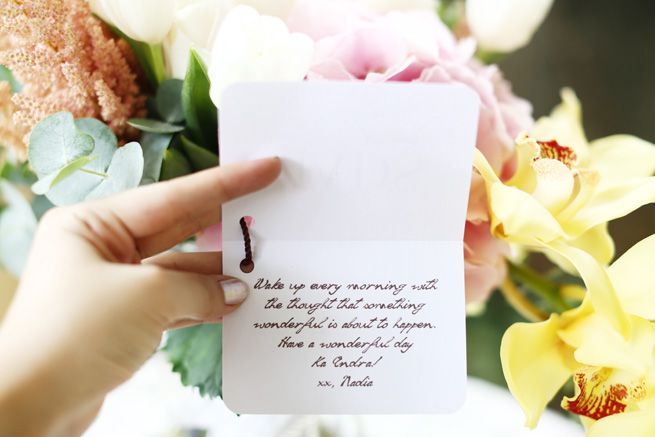 Wake up every morning with
the thought that something
wonderful is about to happen.
Have a wonderful day
Ka Indra!
xx, Nadia